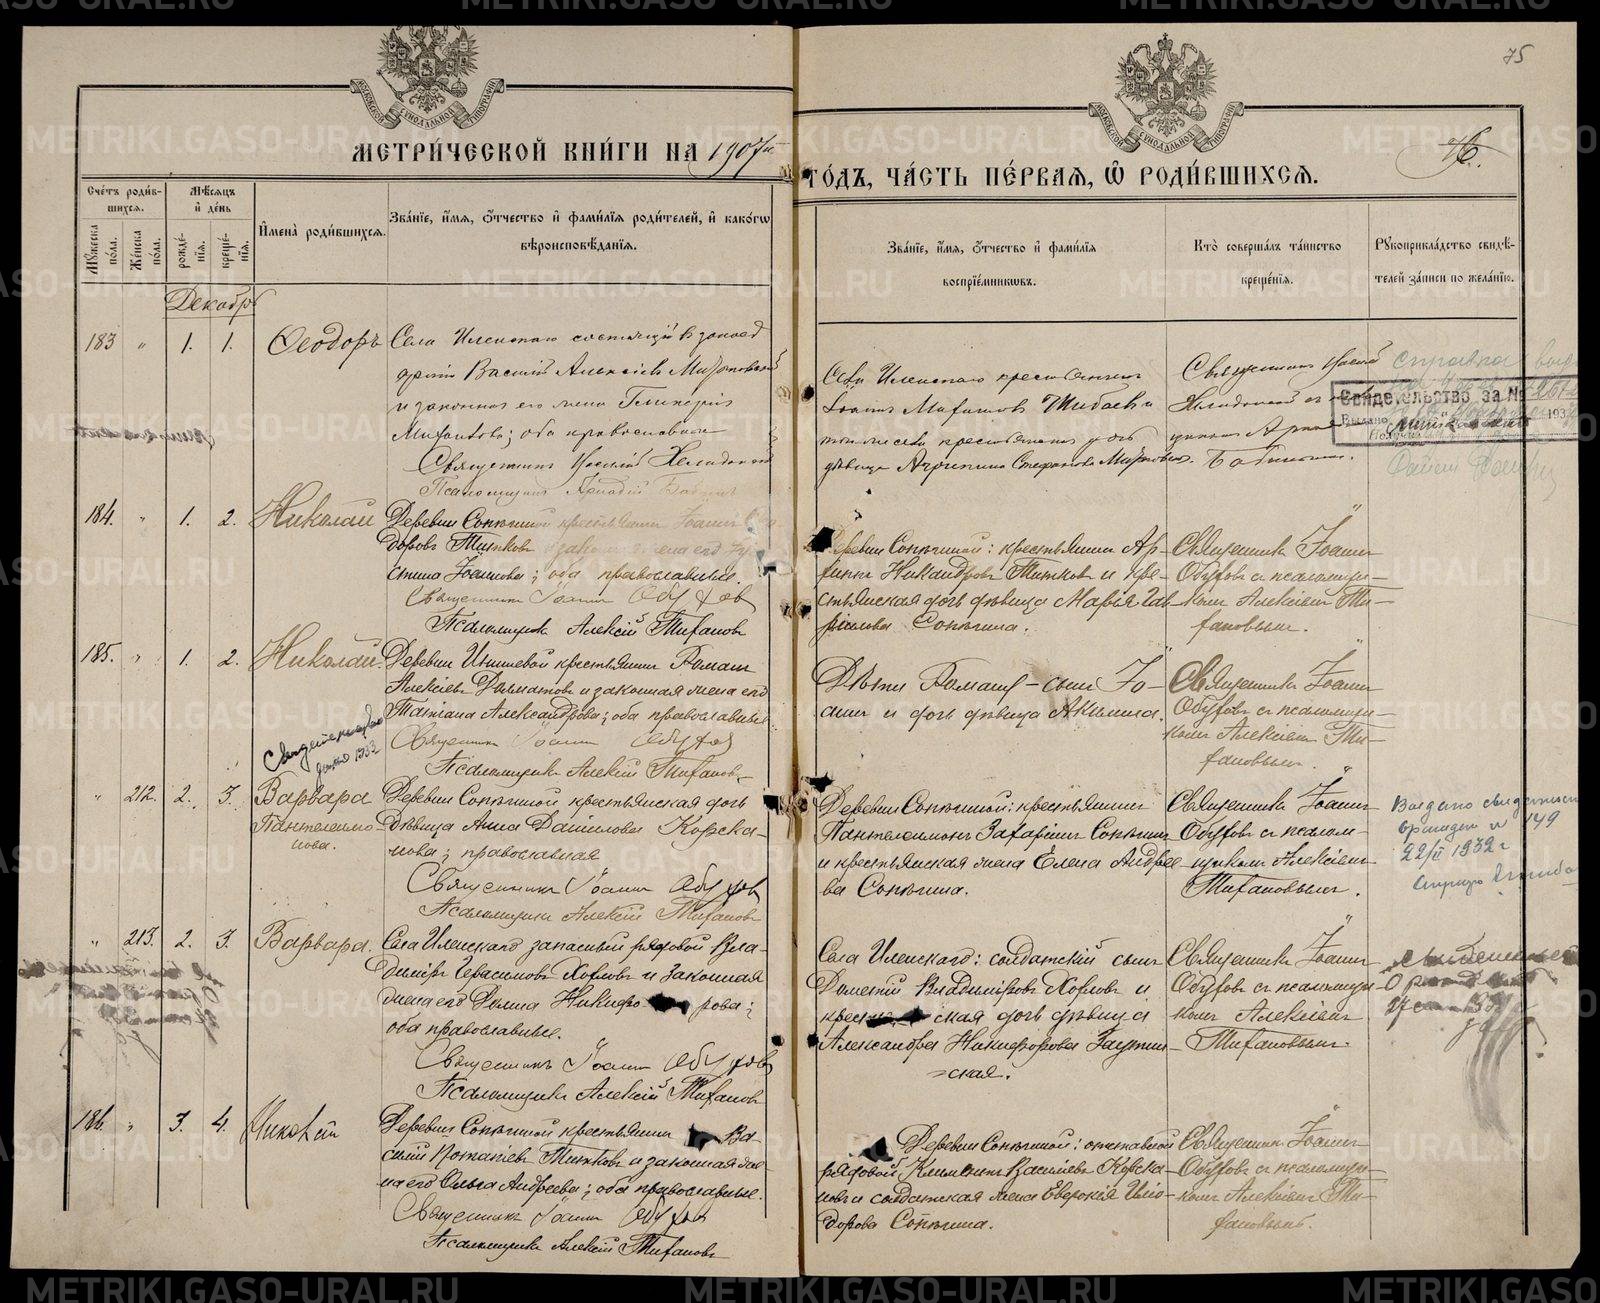 75
МОСКОВСКОЙ СУНОДАЛЬНОЙ ТИПОГРАФІИ
МОСКОВСКОЙ СУНОДАЛЬНОЙ ТИПОГРАФІИ
МЕТРИ́ЧЕСКОЙ КНИ́ГИ НА 1907й
ГО́ДЪ, ЧА́СТЬ ПЕ́РВАЯ, Ѽ РОДИ́ВШИХСЯ.
76.
Сче́тъ роди́вшихся.
Мꙋ́жеска по́ла.
Же́нска по́ла.
Мѣ́сяцъ и҆ де́нь
рожде́нїя.
креще́нїя.
И҆мена̀ роди́вшихся.
Зва́нїе, и҆́мя, ѻ҆́тчество и҆ фами́лїя роди́телей, и҆ како́гѡ
вѣроисповѣ́данїя.
Зва́нїе, и҆́мя, ѻ҆́тчество и҆ фами́лїя
воспрїе́мникѡвъ.
Кто̀ соверша́лъ та́инство
креще́нїя.
Рꙋкоприкла́дство свидѣ́-
телей за́писи по жела́нїю.
Декабрь
183 " 1. 1. Ѳеодоръ
Села Иленскаго состоящій в запасѣ
Василій Алексѣев
и законная его жена Гликерія
оба православные
Священник
Псаломщик
Села Иленскаго крестьянин
Іоанн
дѣвица Агрипина Стефанова
Священник
Свидетельство за №
Выдано
193
184. " 1. 2. Николай
Деревни Сопѣгиной крестьянинъ Іоаннъ
доровъ Титковъ и законная жена его
стина Іоаннова; оба православные.
Священникъ Іоаннъ Обуховъ
Псаломщикъ Алексій Тифановъ
Деревни Сопѣгиной: крестьянинъ Ар-
Никандровъ Титковъ и кре-
стьянская дочь дѣвица Марья Гав-
ріилова Сопѣгина.
Священникъ Іоаннъ
Обуховъ съ псаломщи-
комъ Алексіемъ Ти-
фановымъ.
185. " 1. 2. Николай.
Деревни крестьянинъ Романъ
Алексіевъ Долматовъ и законная жена его
Татіана Александрова; оба православные.
Священникъ Іоаннъ Обуховъ
Псаломщикъ Алексій Тифановъ
Дѣти Романа – сынъ Іо-
аннъ и дочь дѣвица Акилина.
Священникъ Іоаннъ
Обуховъ съ псаломщи-
комъ Алексіемъ Ти-
фановымъ.
1933
" 212. 2. 3. Варвара
Пантелеимо-
нова.
Деревни Сопѣгиной крестьянская дочь
дѣвица Анна Даніилова Корса-
кова; православная
Священникъ Іоаннъ Обуховъ
Псаломщикъ Алексій Тифановъ
Деревни Сопѣгиной: крестьянинъ
Пантелеимонъ Захаріинъ Сопѣгинъ
и крестьянская жена Елена Андрее-
ва Сопѣгина.
Священникъ Іоаннъ
Обуховъ съ псалом-
щикомъ Алексіемъ
Тифановымъ.
149
22/II 1932 г
" 213. 2. 3. Варвара.
Села Иленскаго запасный рядовой Вла-
диміръ Герасимовъ Хорловъ и законная
жена его Домна Никифорова;
оба православные.
Священникъ Іоаннъ Обуховъ
Псаломщикъ Алексій Тифановъ
Села Иленскаго: солдатскій сынъ
Дометій Владиміровъ Хорловъ и
крестьянская дочь дѣвица
Александра Никифорова
ская.
Священникъ Іоаннъ
Обуховъ съ псаломщи-
комъ Алексіемъ
Тифановымъ.
186. " 3. 4. Николай
Деревни Сопѣгиной крестьянинъ Ва-
силій Титковъ и законная же-
на его Ольга Андреева; оба православные.
Священникъ Іоаннъ Обуховъ
Псаломщикъ Алексій Тифановъ
Деревни Сопѣгиной: отставной
рядовой Климентъ Василіевъ Корса-
ковъ и солдатская жена Евдокія Иліо-
дорова Сопѣгина.
Священникъ Іоаннъ
Обуховъ съ псаломщи-
комъ Алексіемъ Ти-
фановымъ.
METRIKI.GASO-URAL.RU